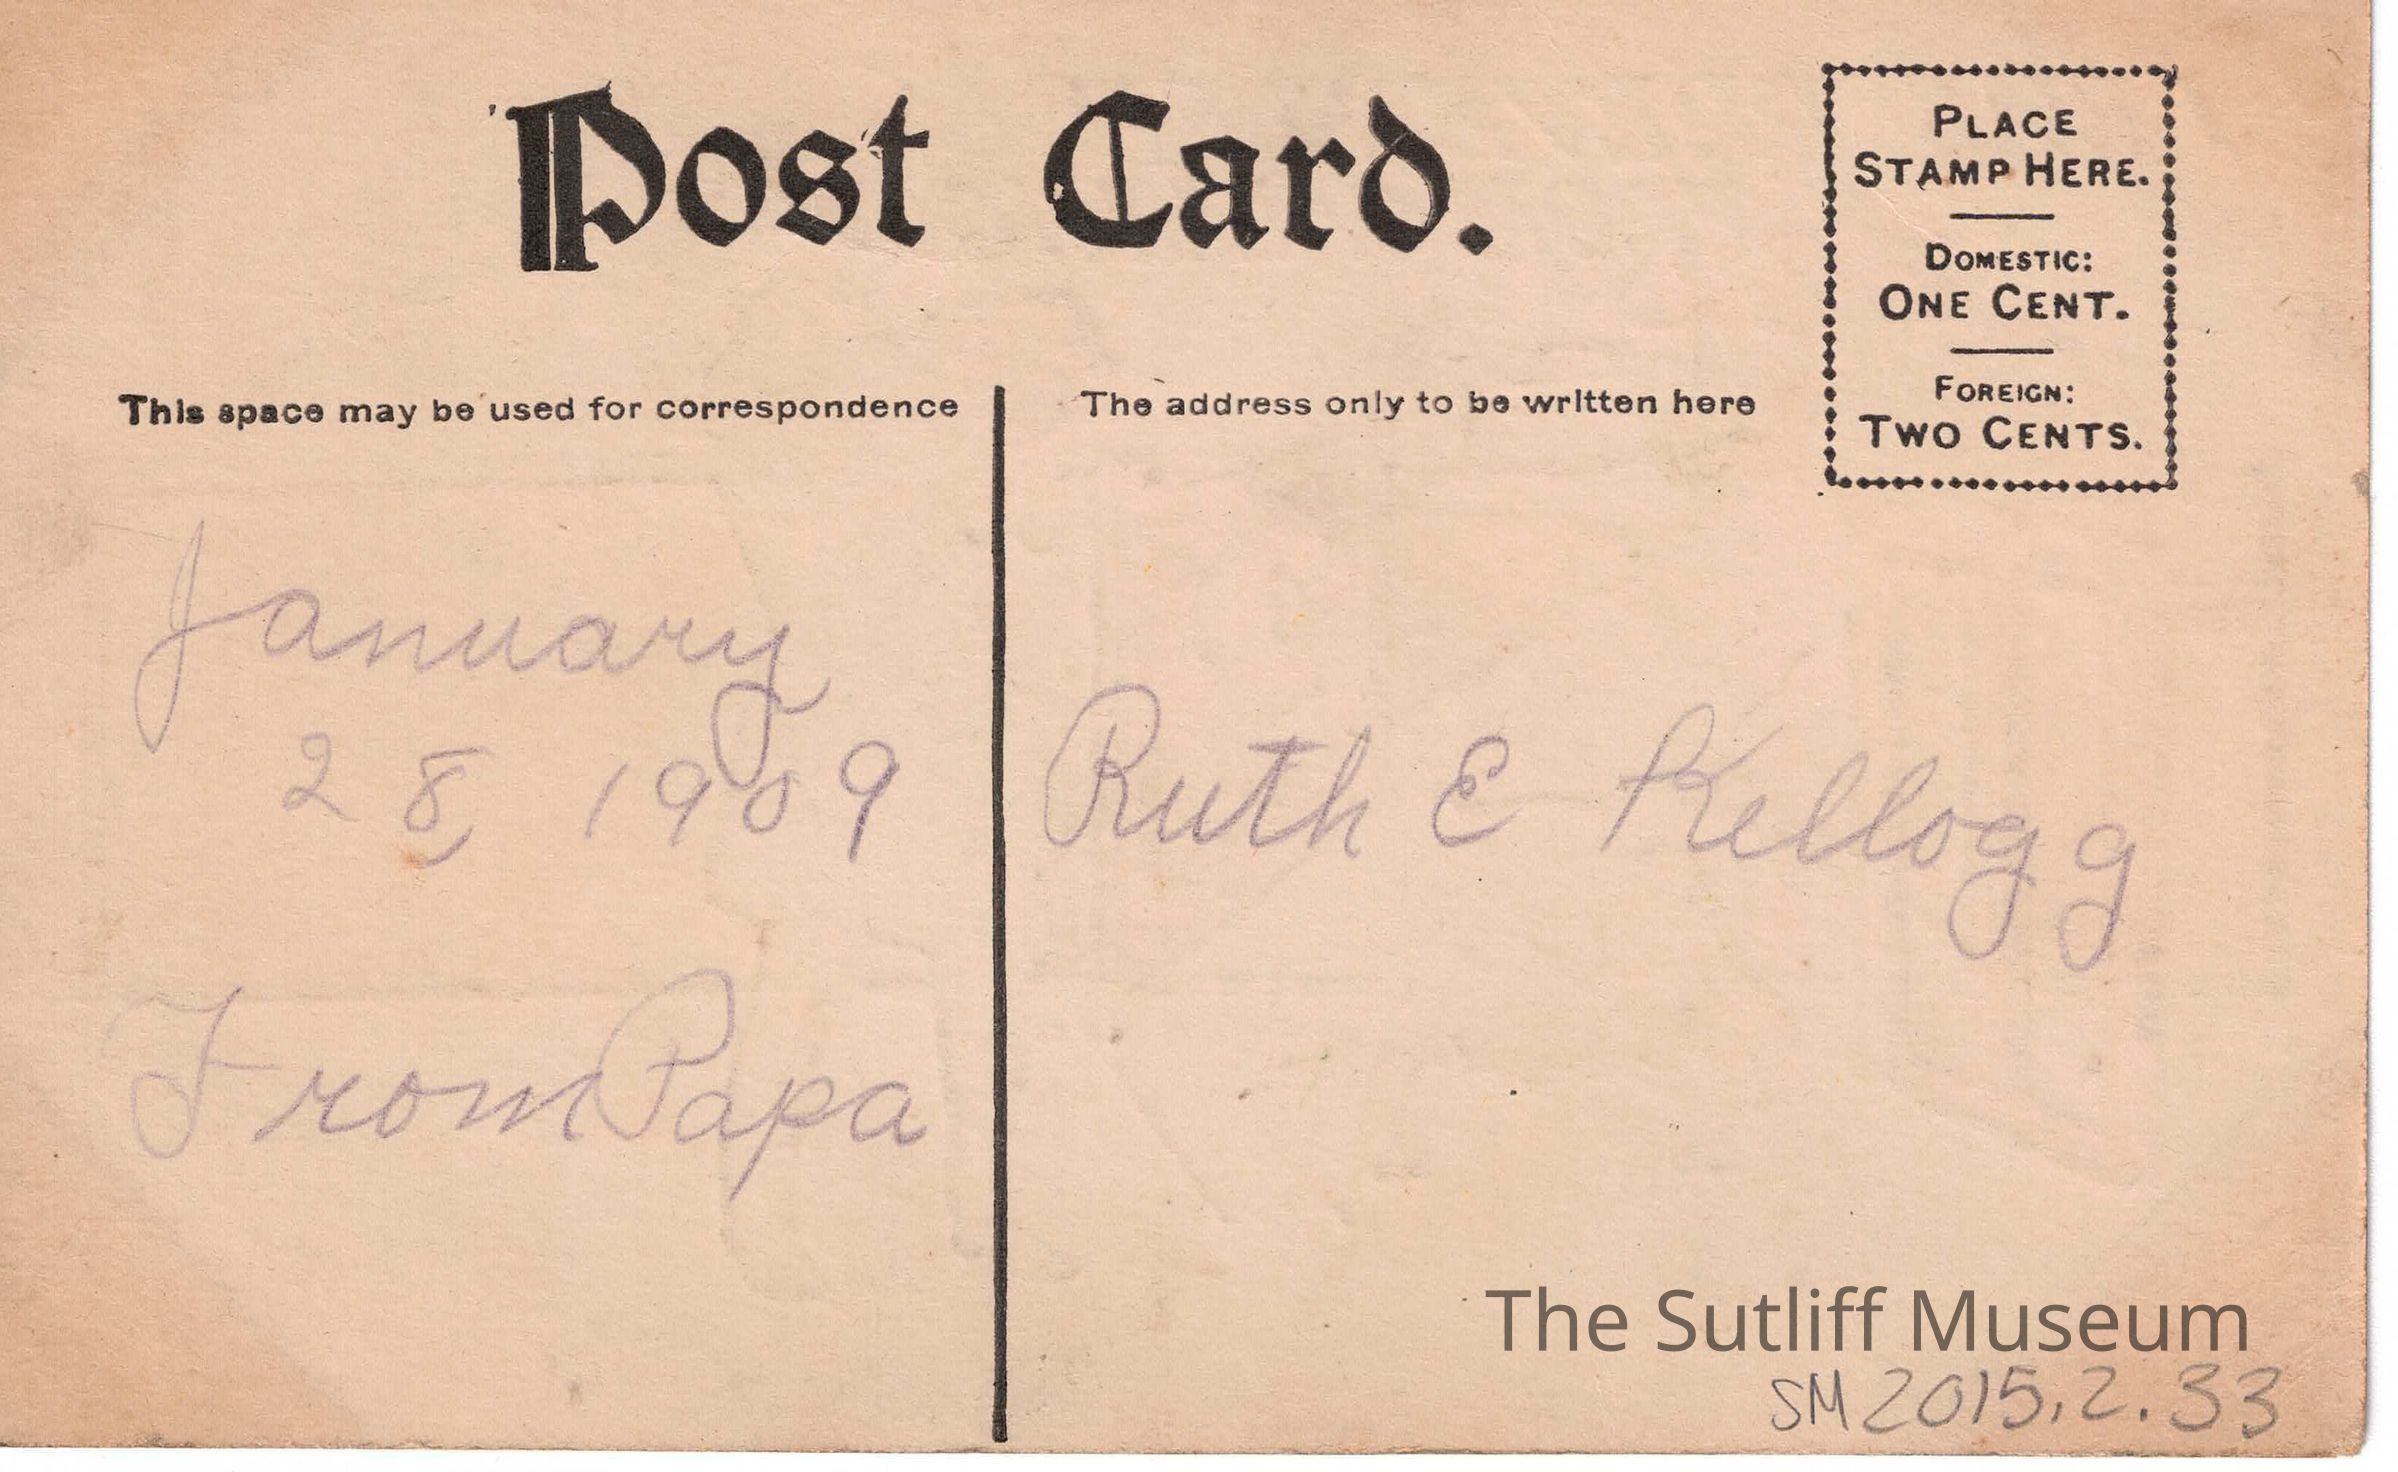 Post Card.
PLACE
STAMP HERE.
DOMESTIC:
ONE CENT.
FOREIGN:
TWO CENTS.
This space may be used for correspondence
The address only to be written here
January
28, 1909
From Papa
Ruth E Kellogg
The Sutliff Museum
SM 2015.2.33